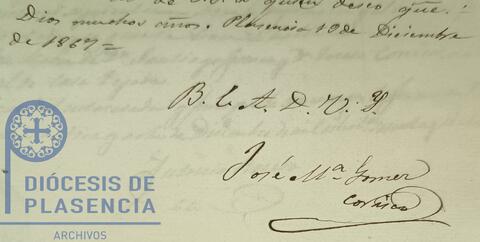 de S. S. a quien deseo que
Dios muchos años. Plasencia 10 de Diciembre
de 1867=
B. L. A. D. V. S.
José Mª Gomez
DIÓCESIS DE
PLASENCIA
ARCHIVOS